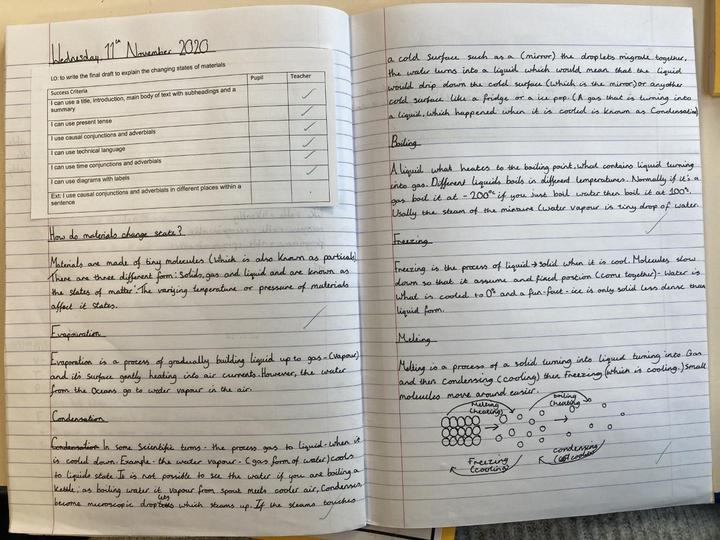 Wednesday 11th November 2020
LO: to write the final draft to explain the changing states of materials
Success Criteria
Pupil
Teacher
I can use a title, introduction, main body of text with subheadings and a
summary
I can use present tense
I use causal conjunctions and adverbials
I can use technical language
I can use time conjunctions and adverbials
I can use diagrams with labels
Ext: I use causal conjunctions and adverbials in different places within a
sentence
How do materials change state?
Materials are made of tiny molecules (which is also known as particals)
There are three different form: Solids, gas and liquid and are known as
the states of matter. The varying temperature or pressure of materials
affect it states.
Evapouration
Evaporation is a process of gradually building liquid up to gas - (vapour)
and it's surface gently heating into air currents. However, the water
from the Oceans go to water vapour in the air.
Condensation
Condensation In some Scientific terms - the process gas to liquid - when it
is cooled down. Example - the water vapour - (gas form of water) cools
to liquids state It is not possible to see the water if you are boiling a
kettle; as boiling water it vapour from spout meets cooler air, Condenses
become microscopic droplets which steams up. If the steams touches
a cold surface such as a (mirror) the droplets migrate together,
the water turns into a liquid which would mean that the liquid
would drip down the cold surface (which is the mirror) or anyother
cold surface like a fridge or a ice pop. (A gas that is turning into
a liquid, which happened when it is cooled is known as Condensation)
Boiling
A liquid what heates to the boiling point, what contains liquid turning
into gas. Different liquids boils in different temperatures. Normally if it's a
gas boil it at - 200°c if you just boil water then boil it at 100°.
Usally the steam of the mixture (water vapour is tiny drop of water.
Freezing
Freezing is the process of liquid → solid when it is cool. Molecules slow
down so that it assume and fixed postion (come together) - Water is
What is cooled to 0° and a fun-fact - ice is only solid less dense than
liquid form.
Melting
Melting is a process of a solid turning into liquid turning into Gas
and then condensing (cooling) then Freezing (which is cooling.) small
molecules move around easier.
Melting
(heating)
boiling
(heating)
Freezing
(cooling)
condensing